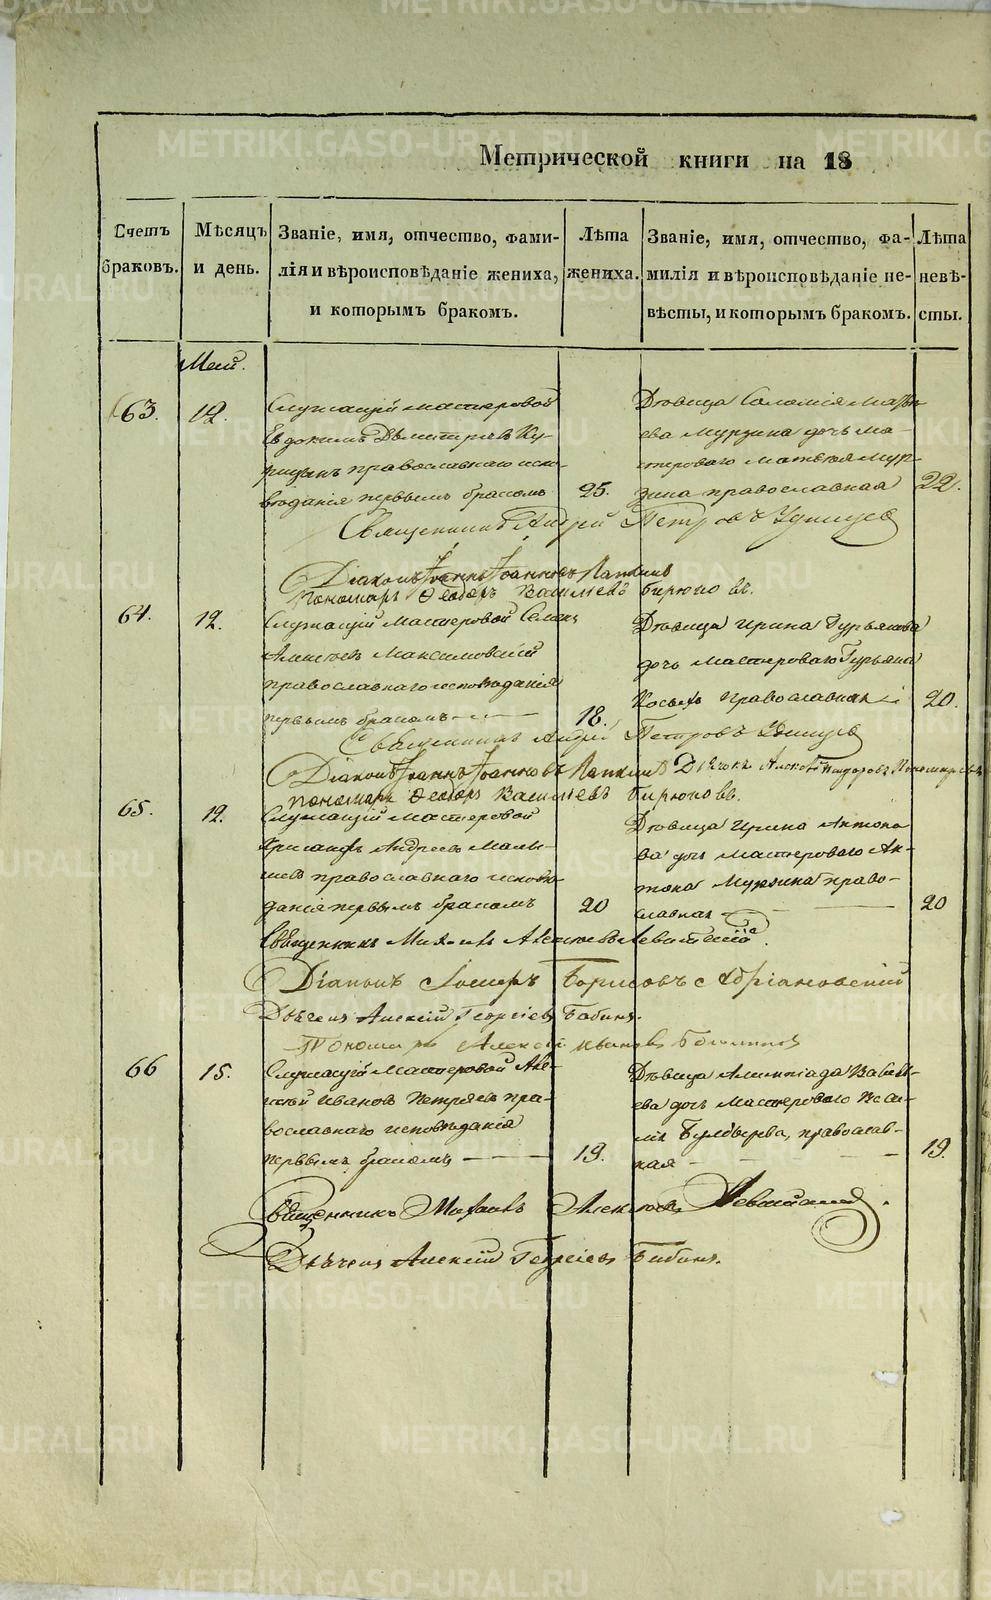 Метрической книги на 18
Счетъ браковъ.
Мѣсяцъ и день.
Званіе, имя, отчество, фами-
лія и вѣроисповѣданіе жениха,
и которымъ бракомъ.
Лѣта
жениха.
Званіе, имя, отчество, фа-
милія и вѣроисповѣданіе не-
вѣсты, и которымъ бракомъ.
Лѣта
невѣ-
сты.
63.
12.
Служащій мастеровой
Евдокимъ Дѣмитріевъ Ку-
рицынъ православнаго испо-
вѣданія первымъ бракомъ
25.
Дѣвица Саломія Матѳ-
ева Мурзина дочь ма-
стероваго Матвѣя Мур-
зина православная
22.
Священникъ Андрей Петровъ Удинцев
Діаконъ Іоаннъ Іоанновъ Лапинъ
Пономарь Ѳеодоръ Васильевъ Бирюковъ.
64.
12.
Служащій Мастеровой
Алексѣевъ Максимовскій
православнаго исповѣданія
первымъ бракомъ
18.
Дѣвица Ирина Гурьянова
дочь мастероваго Гурьяна
Косыхъ православная
20.
Священникъ Андрей Петровъ Удинцев
Діаконъ Іоаннъ Іоанновъ Лапинъ Дьячокъ
Пономарь Ѳеодоръ Васильевъ Бирюковъ.
65.
12.
Служащій Мастеровой
Хрисанфъ Андреевъ Малы-
шевъ православнаго исповѣ-
данія первымъ бракомъ
20
Дѣвица Ирина Антоно-
ва дочь мастероваго Ан-
тона Мурзина право-
славная
20
Священникъ Михаилъ Алексѣевъ Левитскій.
Діаконъ Борисовъ Адріановскій
Дьячекъ Алексій Георгіевъ Бабинъ.
Пономарь Алексѣй Ивановъ
66
15.
Служащій Мастеровой Але-
ксѣй Ивановъ Петряевъ пра-
вославнаго исповѣданія
первымъ бракомъ
19.
Дѣвица Алимпіада Василь-
ева дочь Мастероваго Васи-
лія православ-
ная
19.
Священникъ Михаилъ Алексѣевъ Левитскій.
Дьячекъ Алексій Георгіевъ Бабинъ.
METRIKI.GASO-URAL.RU